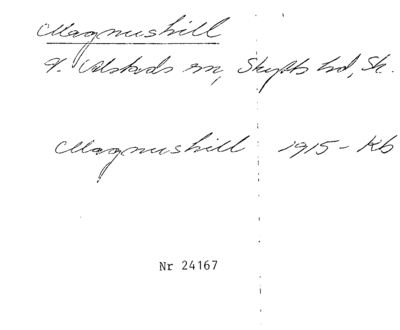 Magnushill
V. Alstads sn, Skytts hd, Sk.
Magnushill 1915 - Kb
Nr 24167